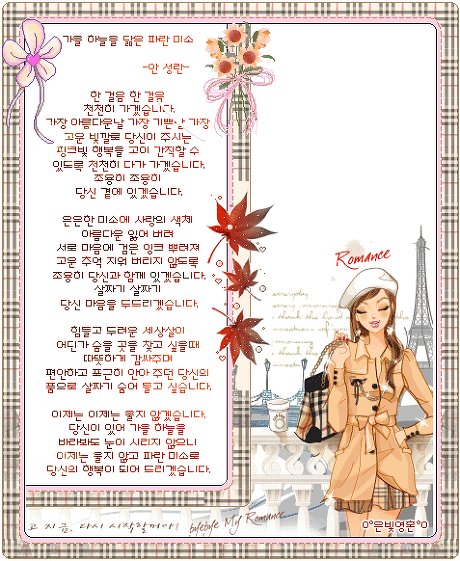 가을 하늘을 닮은 파란 미소
-안 성란-
한 걸음 한 걸음
천천히 가겠습니다.
가장 아름다운날 가장 기쁜날 가장
고운 빛깔로 당신이 주시는
핑크빛 행복을 고이 간직할 수
있도록 천천히 다가 가겠습니다.
조용히 조용히
당신 곁에 있겠습니다.
은은한 미소에 사랑의 색체
아름다운 잃어 버려
서로 마음에 검은 잉크 뿌려져
고운 추억 지워 버리지 않도록
조용히 당신과 함께 있겠습니다.
살짜기 살짜기
당신 마음을 두드리겠습니다.
힘들고 두려운 세상살이
어딘가 숨을 곳을 찾고 싶을때
따뜻하게 감싸주며
편안하고 포근히 안아 주던 당신의
품으로 살짜기 숨어 들고 싶습니다.
이제는 이제는 울지 않겠습니다.
당신이 있어 가을 하늘을
바라봐도 눈이 시리지 않으니
이제는 울지 않고 파란 미소로
당신의 행복이 되어 드리겠습니다.
Romance
everyday
every moment
thank the
sweetness of
morning
thank the
고 지금, 다시 시작할꺼야! byebye My Romance
o*은빛영혼*o